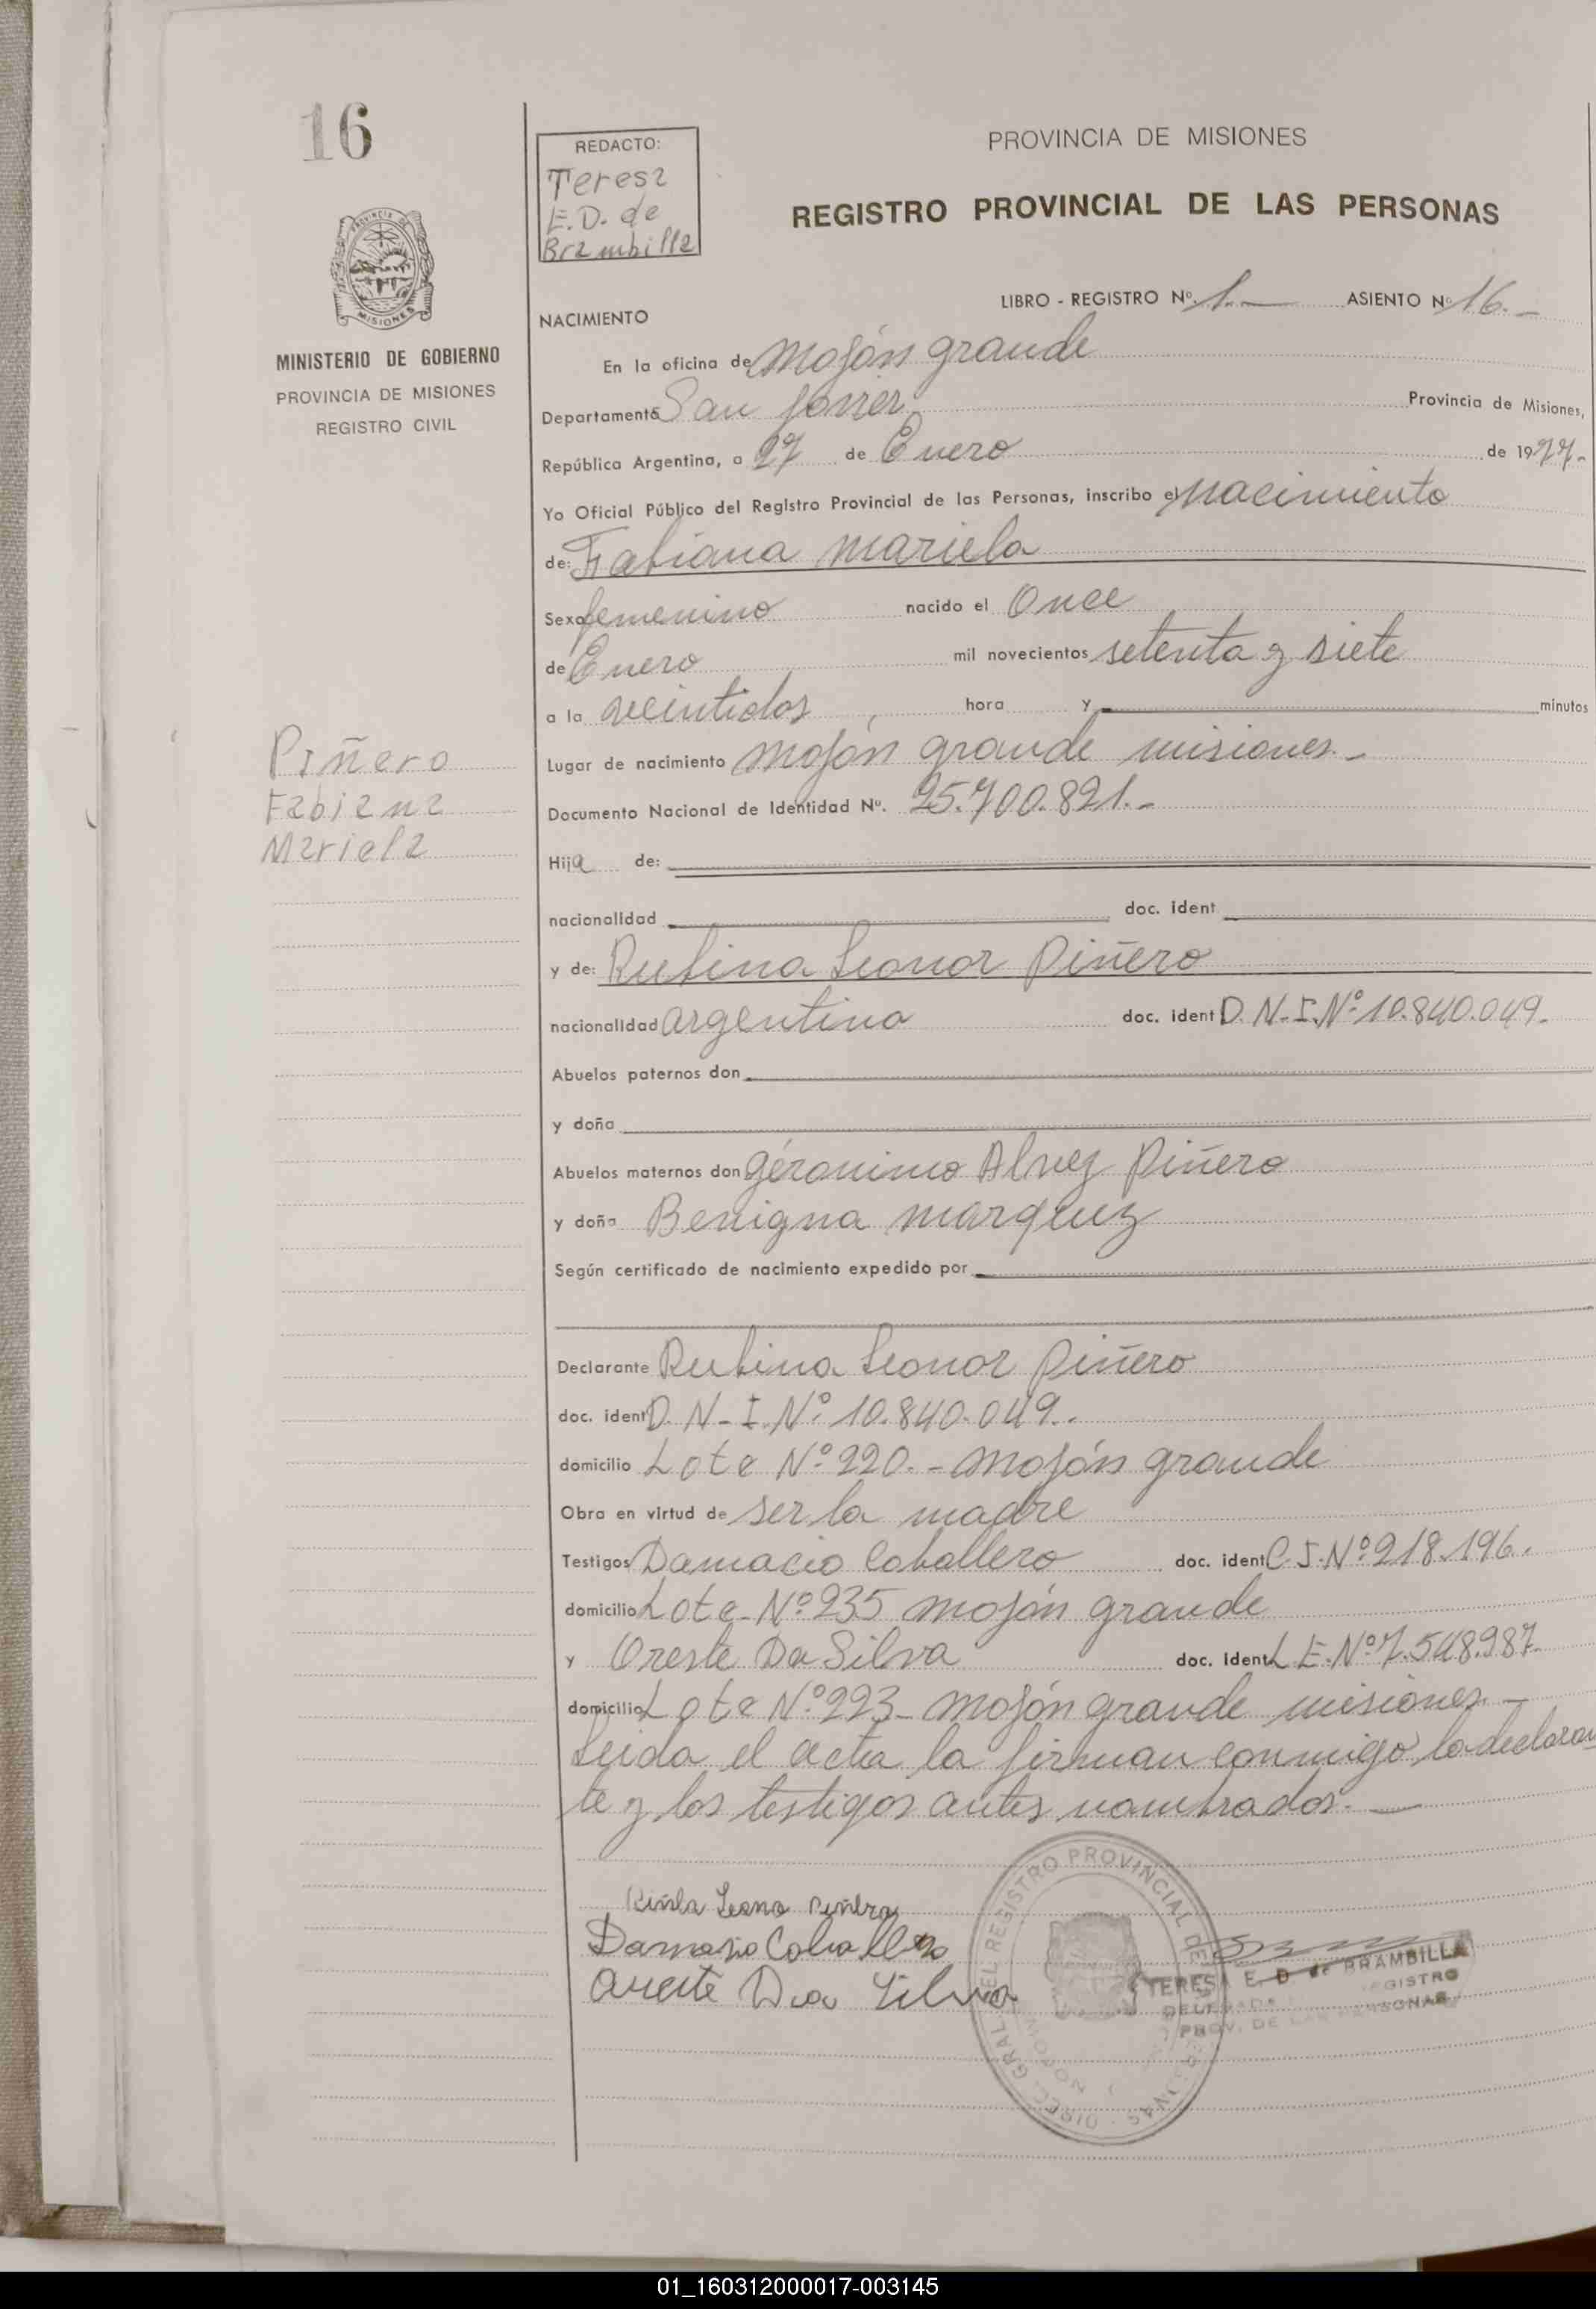 16
REDACTO:
Teresa
E.D. de
Brambilla
PROVINCIA DE MISIONES
REGISTRO PROVINCIAL DE LAS PERSONAS
PROVINCIA DE
MISIONES
MINISTERIO DE GOBIERNO
PROVINCIA DE MISIONES
REGISTRO CIVIL
LIBRO - REGISTRO Nº. 1.- ASIENTO Nº 16.-
NACIMIENTO
En la oficina de Mojón grande
Departamento San Javier. Provincia de Misiones,
República Argentina, a 27 de Enero de 1977.-
Yo Oficial Público del Registro Provincial de las Personas, inscribo el nacimiento
de: Fabiana mariela
Sexo femenino nacido el Once
de Enero mil novecientos setenta y siete
a la veintidos hora y minutos
Lugar de nacimiento Mojón grande misiones.-
Documento Nacional de Identidad Nº. 25.700.821.-
Piñero
Fabiana
Mariela
Hija de:
nacionalidad doc. ident
y de: Rufina Leonor Piñero
nacionalidad argentina doc. ident D.N.I.Nº 10.840.049.
Abuelos paternos don
y doña
Abuelos maternos don géronimo Alvez Piñero
y doña Benigna marquez
Según certificado de nacimiento expedido por
Declarante Rufina Leonor Piñero
doc. ident D.N.I.Nº 10.840.049.
domicilio Lote Nº 220.- Mojón grande
Obra en virtud de ser la madre
Testigos Damacio Caballero doc. ident C.I.Nº 218.196.
domicilio Lote Nº 235 mojón grande
y Oreste Da Silva doc. Ident L.E.Nº 7.548.987.
domicilio Lote Nº 223- mojón grande misiones.-
Leida el acta la firman conmigo, la declaran
te y los testigos antes nombrados.-
Damasio Caballero
Oreste Da Silva
DIREC. GRAL. DEL REGISTRO PROVINCIAL DE LAS PERSONAS
TERESA E. D. de BRAMBILLA
DELEGADA REGISTRO
PROV. DE LAS PERSONAS
01_160312000017-003145